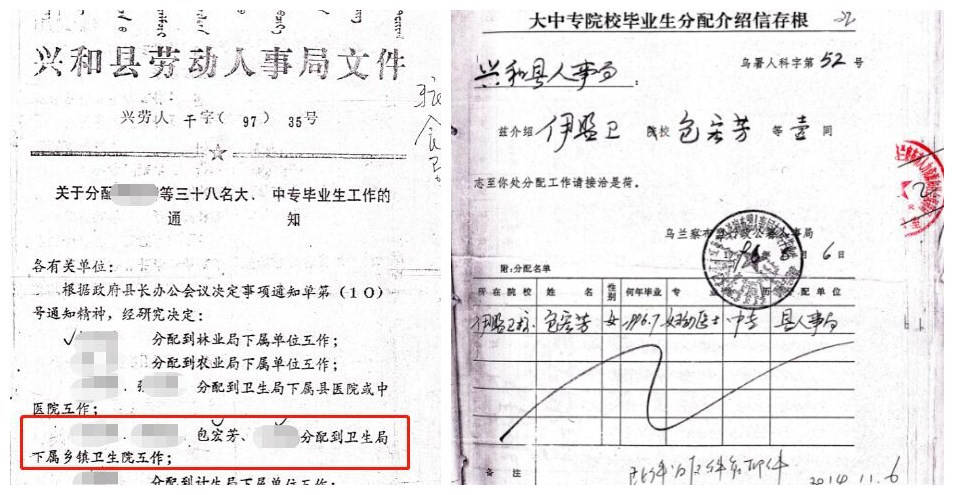 兴和县劳动人事局文件
兴劳人干字(97)35号
关于分配等三十八名大、中专毕业生工作的
通知
各有关单位：
根据政府县长办公会议决定事项通知单第(10)
号通知精神，经研究决定：
分配到林业局下属单位工作；
分配到农业局下属单位工作；
分配到卫生局下属县医院或中
医院工作；
包宏芳、分配到卫生局
下属乡镇卫生院工作；
分配到计生局下属单位工作；
大中专院校毕业生分配介绍信存根
乌署人科字第52号
兴和县人事局：
兹介绍伊盟卫院校包宏芳等壹同
志至你处分配工作请接洽是荷。
6日
附：分配名单
所在院校 姓名 性别 何年毕业 专业 分配单位
伊盟卫校 包宏芳 女 1996.7 妇幼医士 中专 县人事局
备注
2014.11.6